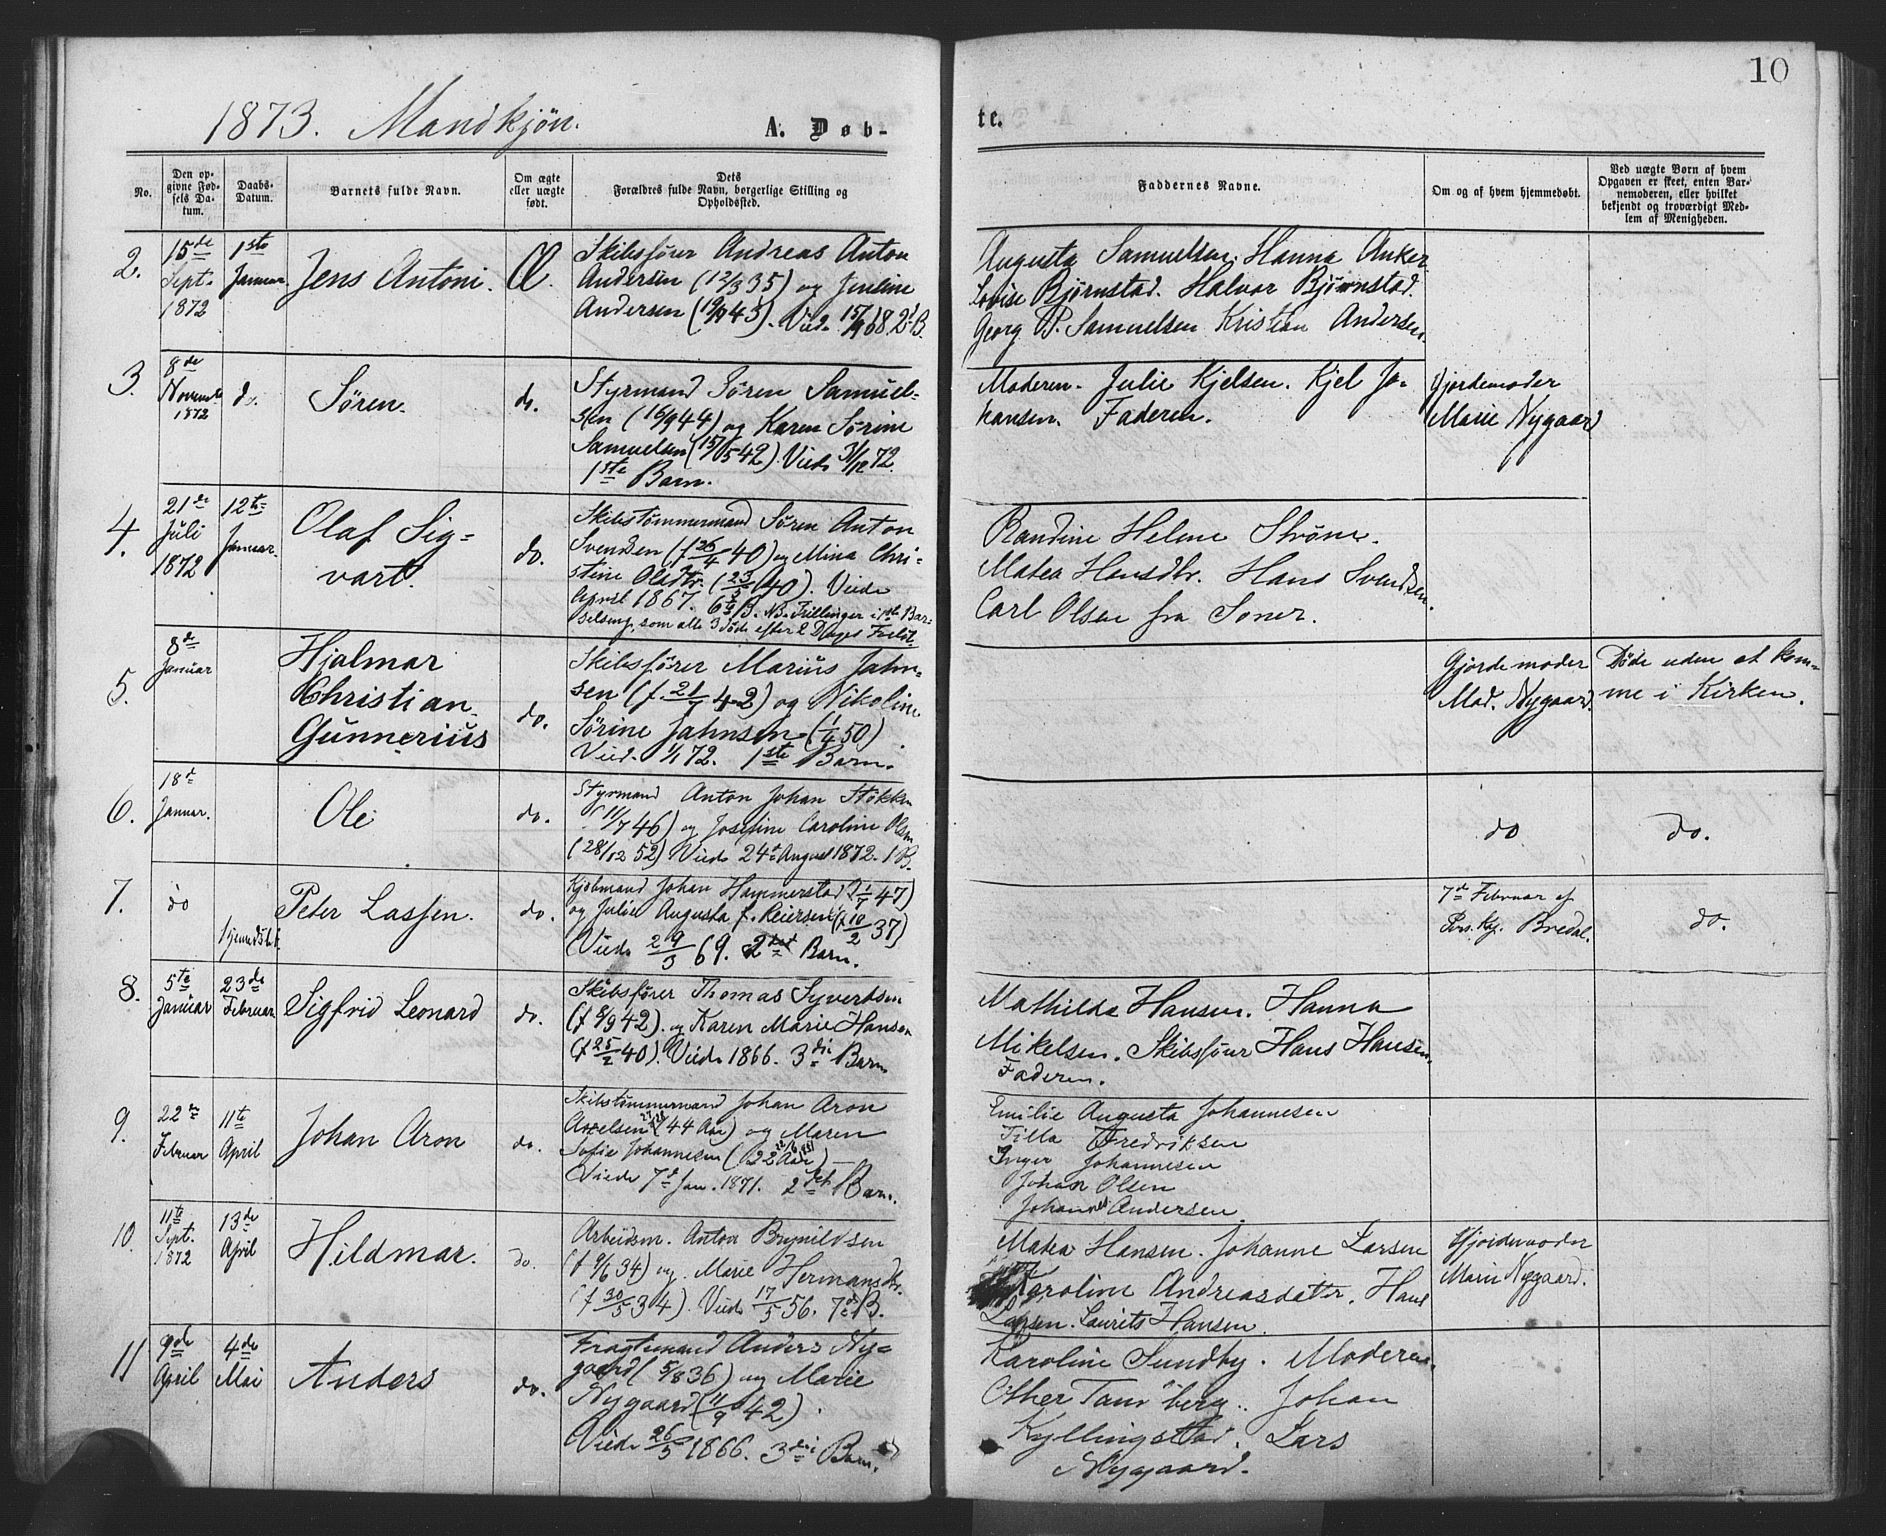 10
1873. Mandkjön.
A. Døb-
te.
No.
Den op-
givne Fød-
sels Da-
tum.
Daabs-
Datum.
Barnets fulde Navn.
Om ægte
eller uægte
født.
Dets
Forældres fulde Navn, borgerlige Stilling og
Opholdssted.
Faddernes Navne.
Om og af hvem hjemmedøbt.
Ved uægte Børn af hvem
Opgaven er skeet, enten Bar-
nemoderen, eller hvilket
bekjendt og troværdigt Med-
lem af Menigheden.
2.
15de
Sept.
1872
1ste
Januar
Jens Antoni.
Æ.
Skibsfører Andreas Anton
Andersen (12/3 35) og Juline
Andersen (19/9 43). Vied 15/9 68. 2d B.
Augusta Samuelsen. Hanna Anker
Lovise Bjørnstad. Halvor Bjørnstad.
Georg P. Samuelsen Kristian Andersen.
3.
8de
Novemb.
1872
do.
Søren.
do.
Styrmand Søren Samuel-
sen (16/9 44) og Karen Sørine
Samuelsen (15/5 42). Viede 31/12 72.
1ste Barn.
Moderen. Julie Kjelsen. Kjel Jo-
hansen. Faderen.
Gjordemoder
Marie Nygaard
4.
21de
Juli
1872
12te
Januar.
Olaf Sig-
vart.
do.
Skibstømmermand Søren Anton
Svendsen (f 26/4 40) og Mina Chri-
stine Olsdtr. (23/5 40). Viede
April 1867. B. NB. Trillinger i 1ste Bar-
selseng, som alle 3 døde efter 2 Dages Forløb
Randine Helene Strøm.
Matea Hansdtr. Hans Svendsen.
Carl Olsen fra Soner.
5.
8de
Januar
Hjalmar
Christian
Gunnerius
do.
Skibsfører Marius Jahn-
sen (f. 21/1 42) og Nikoline
Sørine Jahnsen (1/4 50)
Vied 1/1 72. 1ste Barn.
Gjordemoder
Mad. Nygaard.
Døde uden at kom-
me i Kirken.
6.
18de
Januar.
Ole
do.
Styrmand Anton Johan Stokken
(11/7 46) og Josefine Caroline Olsen
(28/12 52) Viede 24de August 1872. 1 B.
do
do.
7.
do
hjemmdøbt
Peter Lassen.
do.
Kjøbmand Johan Hammerstad (f 1/7 47)
og Julie Augusta f. Reiersen (f 10/2 37)
Viede 29/3 69. 2det Barn.
7de Februar af
Pers. Kap. Bredal.
do.
8.
5te
Januar
23de
Februar
Sigfrid Leonard
do.
Skibsfører Thomas Syvertsen
(f 8/9 42). og Karen Marie Hansen
(f 25/2 40). Viede 1866. 3die Barn
Mathilde Hansen. Hanna
Mikelsen. Skibsfører Hans Hansen,
Faderen.
9.
22de
Februar
11te
April
Johan Aron
do.
Skibstømmermand Johan Aron
Axelsen (44 Aar) og Maren
Sofie Johannesen (22 Aar)
Viede 7de Jan. 1871. 2det Barn.
Emilie Augusta Johannesen
Tilla Fredriksen
Inger Johannesen
Johan Olsen
Johannes Andersen
10.
11te
Sept.
1872
13de
April
Hildmar.
do.
Arbeidsm. Anton Brynildsen
(f 9/6 34) og Marie Hermansdtr.
(f 30/5 34). Viede 17/5 56. 7de B.
Matea Hansen. Johanne Larsen
Karoline Andreasdatr. Hans
Larsen. Laurits Hansen.
Gjordemoder
Marie Nygaard.
11
9de
April
4de
Mai
Anders
do.
Fragtemand Anders Ny-
gaard (5/8 36) og Marie
Nygaard (11/9 42).
Viede 26/5 1866. 3die Barn.
Karoline Sundby. Moderen.
Other Tandberg. Johan
Kyllingstad. Lars
Nygaard.